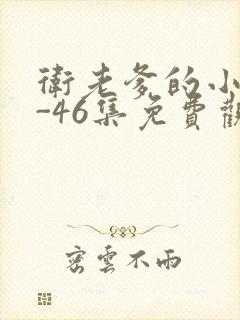 衛老爹的小
-46集免費觀
密雲不雨